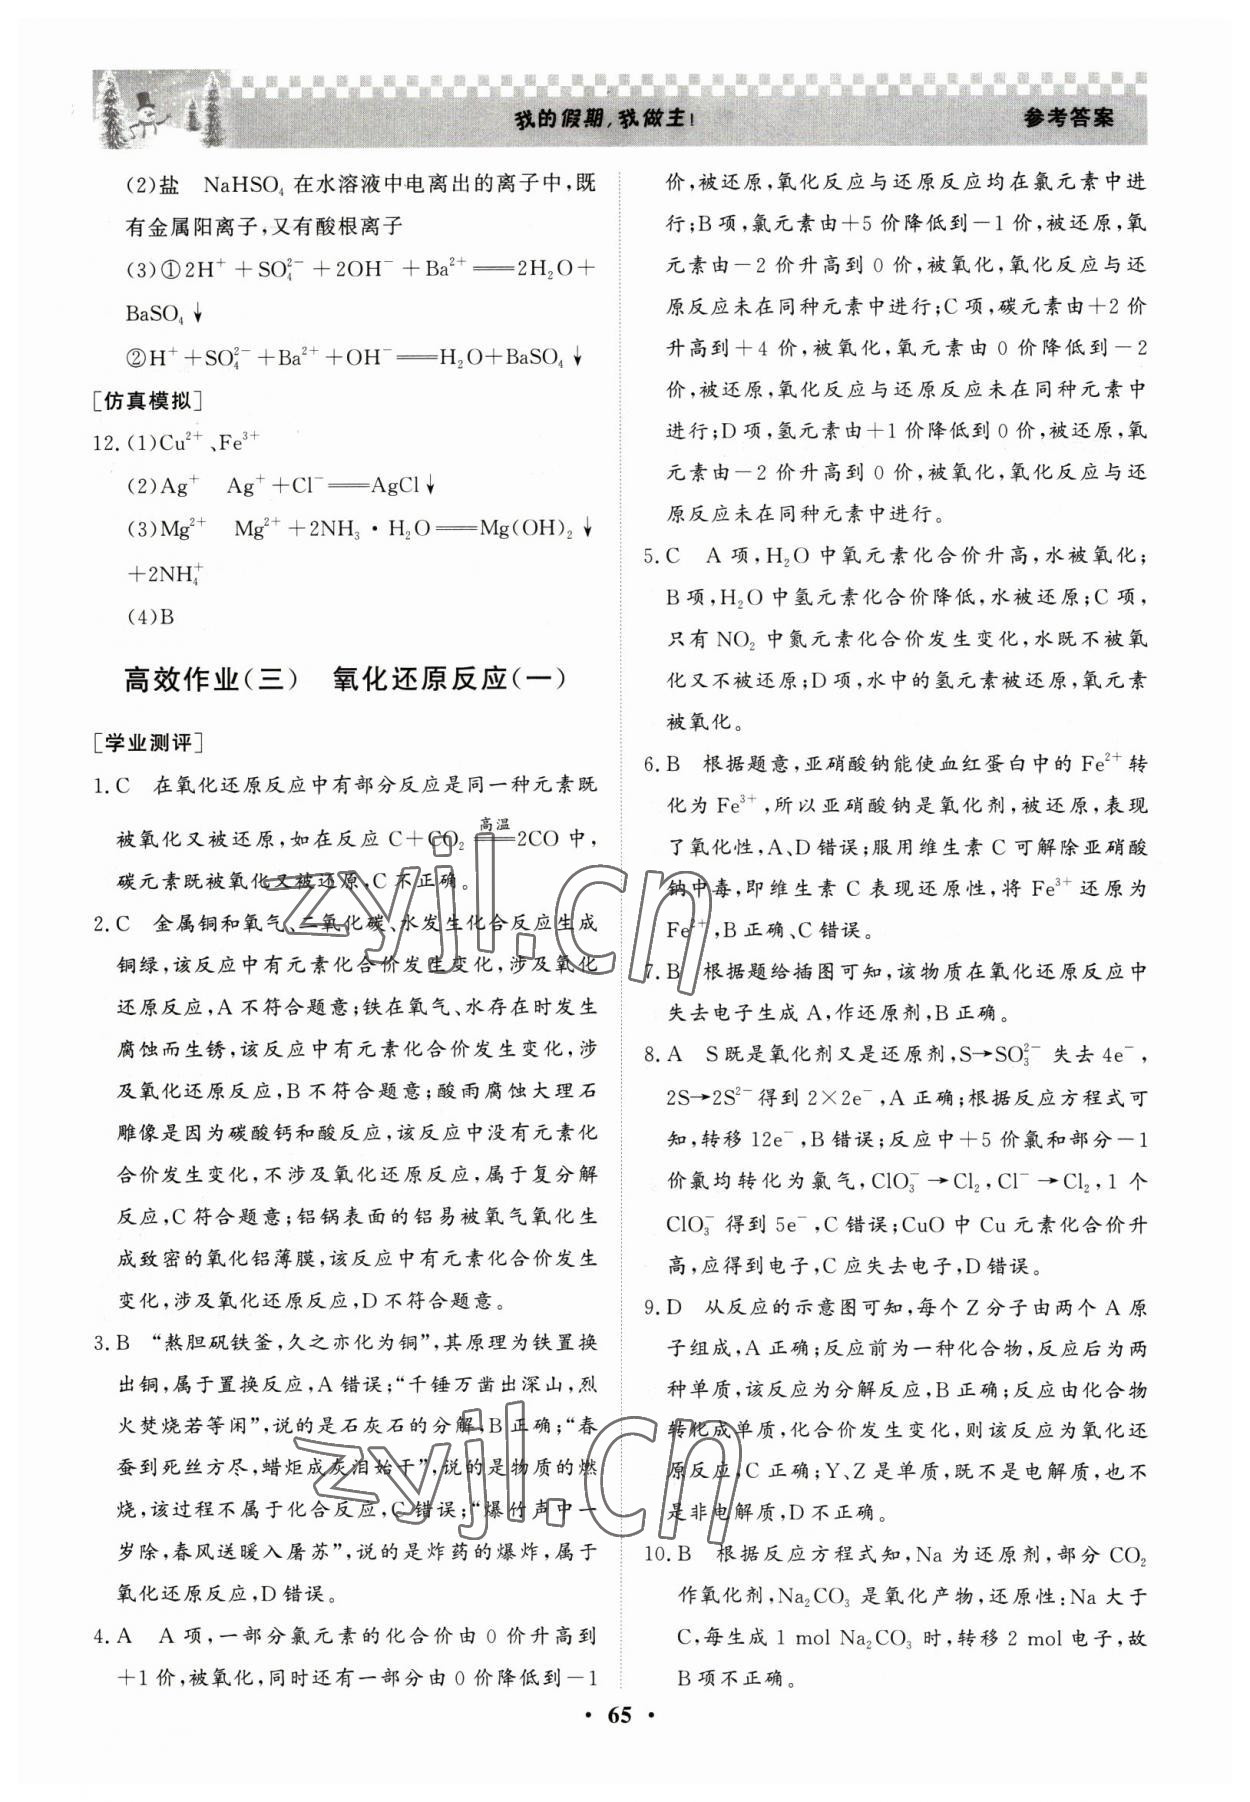 我的假期,我做主!
参考答案
(2)盐 NaHSO₄ 在水溶液中电离出的离子中,既
有金属阳离子,又有酸根离子
(3)①2H⁺+SO₄²⁻+2OH⁻+Ba²⁺══2H₂O+
BaSO₄↓
②H⁺+SO₄²⁻+Ba²⁺+OH⁻══H₂O+BaSO₄↓
[仿真模拟]
12.(1)Cu²⁺、Fe³⁺
(2)Ag⁺ Ag⁺+Cl⁻══AgCl↓
(3)Mg²⁺ Mg²⁺+2NH₃·H₂O══Mg(OH)₂↓
+2NH₄⁺
(4)B
高效作业(三) 氧化还原反应(一)
[学业测评]
1.C 在氧化还原反应中有部分反应是同一种元素既
被氧化又被还原,如在反应 C+CO₂ 高温══2CO 中,
碳元素既被氧化又被还原,C 不正确。
2.C 金属铜和氧气、二氧化碳、水发生化合反应生成
铜绿,该反应中有元素化合价发生变化,涉及氧化
还原反应,A 不符合题意;铁在氧气、水存在时发生
腐蚀而生锈,该反应中有元素化合价发生变化,涉
及氧化还原反应,B 不符合题意;酸雨腐蚀大理石
雕像是因为碳酸钙和酸反应,该反应中没有元素化
合价发生变化,不涉及氧化还原反应,属于复分解
反应,C 符合题意;铝锅表面的铝易被氧气氧化生
成致密的氧化铝薄膜,该反应中有元素化合价发生
变化,涉及氧化还原反应,D 不符合题意。
3.B “熬胆矾铁釜,久之亦化为铜”,其原理为铁置换
出铜,属于置换反应,A 错误;“千锤万凿出深山,烈
火焚烧若等闲”,说的是石灰石的分解,B 正确;“春
蚕到死丝方尽,蜡炬成灰泪始干”,说的是物质的燃
烧,该过程不属于化合反应,C 错误;“爆竹声中一
岁除,春风送暖入屠苏”,说的是炸药的爆炸,属于
氧化还原反应,D 错误。
4.A A 项,一部分氯元素的化合价由 0 价升高到
+1 价,被氧化,同时还有一部分由 0 价降低到-1
价,被还原,氧化反应与还原反应均在氯元素中进
行;B 项,氯元素由+5 价降低到-1 价,被还原,氧
元素由-2 价升高到 0 价,被氧化,氧化反应与还
原反应未在同种元素中进行;C 项,碳元素由+2 价
升高到+4 价,被氧化,氧元素由 0 价降低到-2
价,被还原,氧化反应与还原反应未在同种元素中
进行;D 项,氢元素由+1 价降低到 0 价,被还原,氧
元素由-2 价升高到 0 价,被氧化,氧化反应与还
原反应未在同种元素中进行。
5.C A 项,H₂O 中氧元素化合价升高,水被氧化;
B 项,H₂O 中氢元素化合价降低,水被还原;C 项,
只有 NO₂ 中氮元素化合价发生变化,水既不被氧
化又不被还原;D 项,水中的氢元素被还原,氧元素
被氧化。
6.B 根据题意,亚硝酸钠能使血红蛋白中的 Fe²⁺ 转
化为 Fe³⁺,所以亚硝酸钠是氧化剂,被还原,表现
了氧化性,A、D 错误;服用维生素 C 可解除亚硝酸
钠中毒,即维生素 C 表现还原性,将 Fe³⁺ 还原为
Fe²⁺,B 正确、C 错误。
7.B 根据题给插图可知,该物质在氧化还原反应中
失去电子生成 A,作还原剂,B 正确。
8.A S 既是氧化剂又是还原剂,S→SO₃²⁻ 失去 4e⁻,
2S→2S²⁻ 得到 2×2e⁻,A 正确;根据反应方程式可
知,转移 12e⁻,B 错误;反应中+5 价氯和部分-1
价氯均转化为氯气,ClO₃⁻→Cl₂,Cl⁻→Cl₂,1 个
ClO₃⁻ 得到 5e⁻,C 错误;CuO 中 Cu 元素化合价升
高,应得到电子,C 应失去电子,D 错误。
9.D 从反应的示意图可知,每个 Z 分子由两个 A 原
子组成,A 正确;反应前为一种化合物,反应后为两
种单质,该反应为分解反应,B 正确;反应由化合物
转化成单质,化合价发生变化,则该反应为氧化还
原反应,C 正确;Y、Z 是单质,既不是电解质,也不
是非电解质,D 不正确。
10.B 根据反应方程式知,Na 为还原剂,部分 CO₂
作氧化剂,Na₂CO₃ 是氧化产物,还原性:Na 大于
C,每生成 1 mol Na₂CO₃ 时,转移 2 mol 电子,故
B 项不正确。
• 65 •
zyjl.cn
zyjl.cn